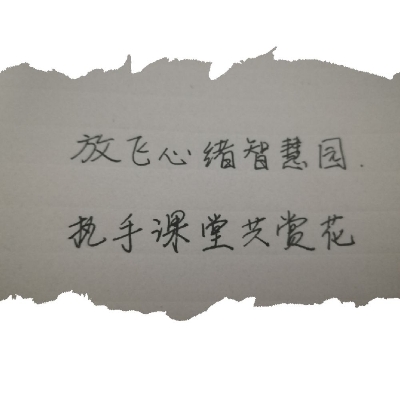 放飞心绪智慧园.
执手课堂共赏花